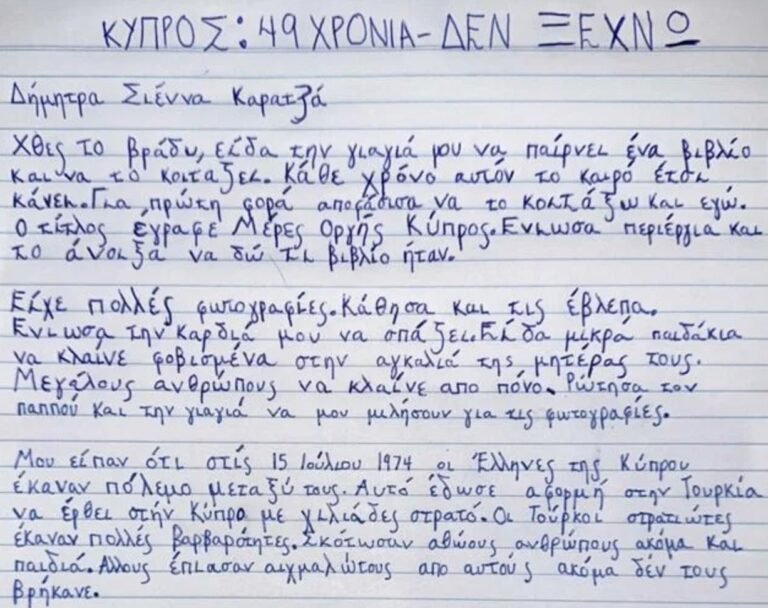 ΚΥΠΡΟΣ: 49 ΧΡΟΝΙΑ - ΔΕΝ ΞΕΧΝΩ
Δήμητρα Σιέννα Καρατζά
Χθες το βράδυ, είδα την γιαγιά μου να παίρνει ένα βιβλίο
και να το κοιτάζει. Κάθε χρόνο αυτόν το καιρό έτσι
κάνει. Για πρώτη φορά αποφάσισα να το κοιτάξω και εγώ.
Ο τίτλος έγραφε Μέρες Οργής Κύπρος. Ενιωσα περιέργια και
το άνοιξα να δώ τι βιβλίο ήταν.
Είχε πολλές φωτογραφίες. Κάθησα και τις έβλεπα.
Ενιωσα την καρδιά μου να σπάζει. Είδα μικρά παιδάκια
να κλαίνε φοβισμένα στην αγκαλιά της μητέρας τους.
Μεγάλους ανθρώπους να κλαίνε απο πόνο. Ρώτησα τον
παππού και την γιαγιά να μου μιλήσουν για τις φωτογραφίες.
Μου είπαν ότι στίς 15 Ιούλιου 1974 οι Έλληνες της Κύπρου
έκαναν πόλεμο μεταξύ τους. Αυτό έδωσε αφορμή στην Τουρκία
να έρθει στήν Κύπρο με χιλιάδες στρατό. Οι Τούρκοι στρατιώτες
έκαναν πολλές βαρβαρότητες. Σκότωσαν αθώους ανθρώπους ακόμα και
παιδιά. Αλλους έπιασαν αιχμαλώτους απο αυτούς ακόμα δέν τους
βρήκανε.